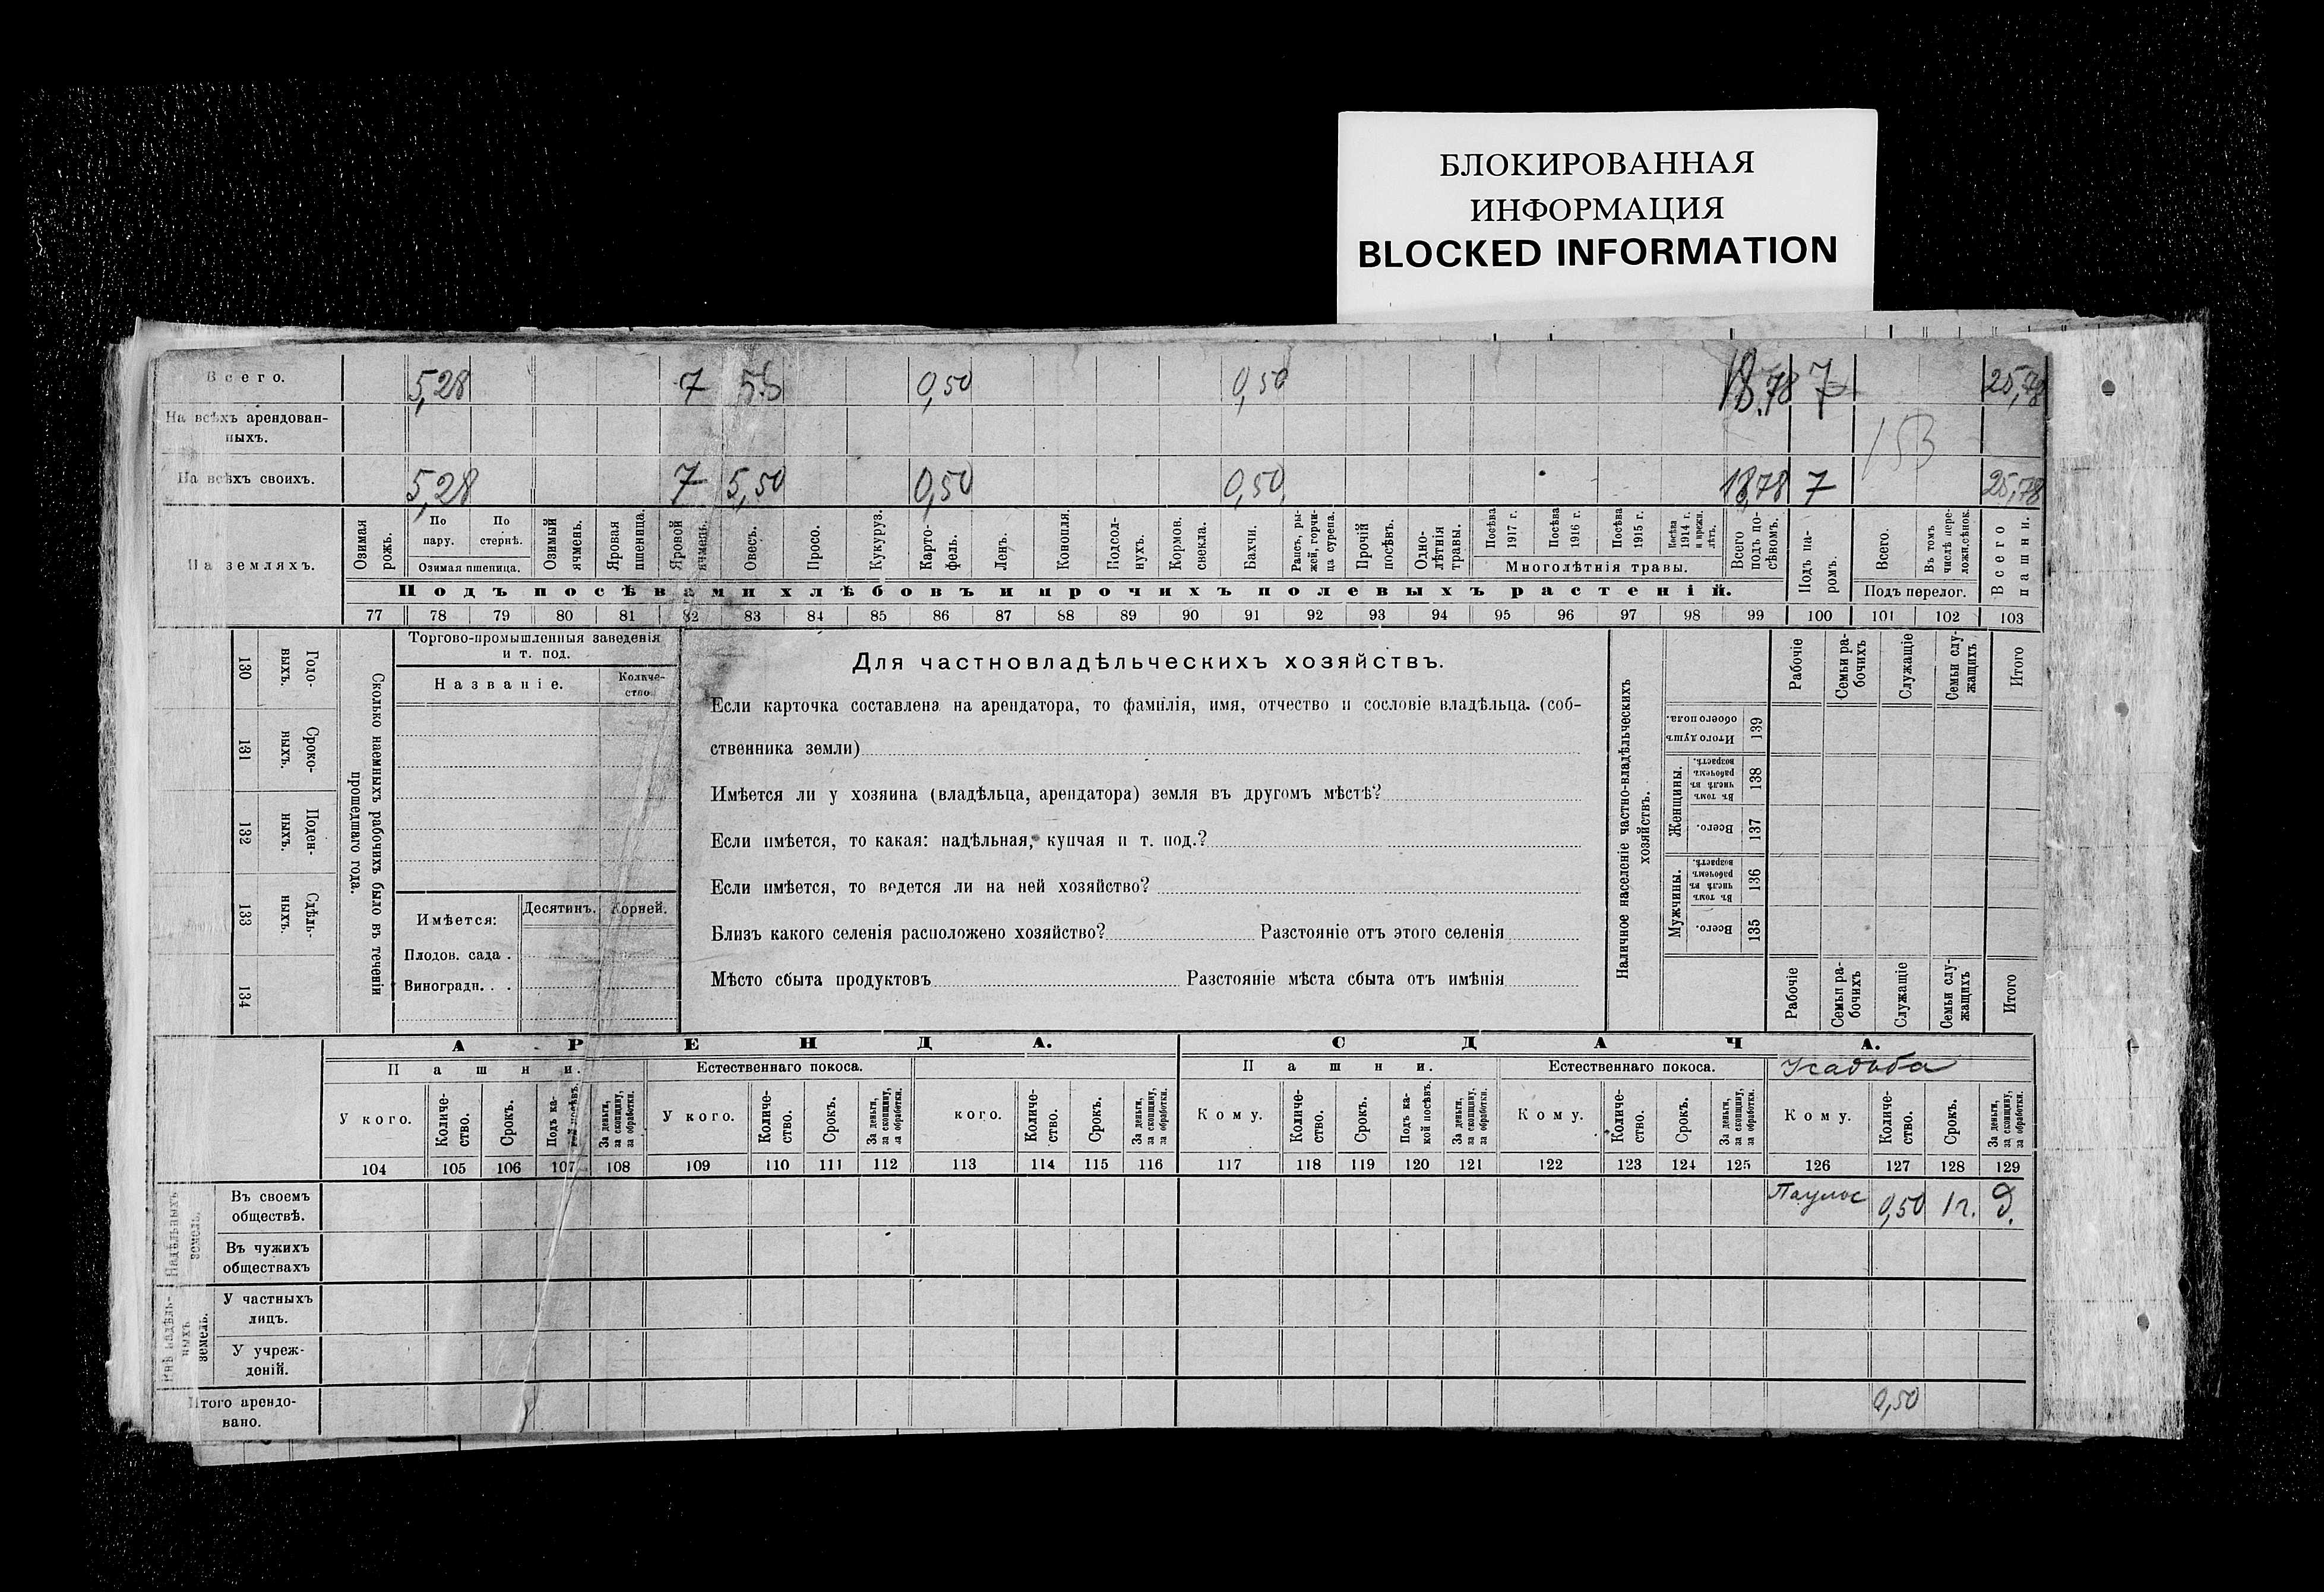 БЛОКИРОВАННАЯ
ИНФОРМАЦИЯ
BLOCKED INFORMATION
Всего. 5,28 7 5.5 0,50 0,50 18.78 7 25,78
На всѣхъ арендован-
ныхъ.
На всѣхъ своихъ. 5,28 7 5,50 0,50 0,50 18,78 7 25,78
На земляхъ.
Озимая рожь.
По пару.
По стернѣ.
Озимая пшеница.
Озимый ячмень.
Яровая пшеница.
Яровой ячмень.
Овесъ.
Просо.
Кукуруз.
Карто-
фель.
Ленъ.
Конопля.
Подсол-
нухъ.
Кормов. свекла.
Бахчи.
Рапсъ, ры-
жей, горчи-
ца сурепа.
Прочій посѣвъ.
Одно-
лѣтнія травы.
Посѣва 1917 г.
Посѣва 1916 г.
Посѣва 1915 г.
Посѣва 1914 г. и прежн. лѣтъ.
Многолѣтнія травы.
Всего подъ по-
сѣвомъ.
Подъ па-
ромъ.
Всего.
Въ томъ числѣ пере-
ложи.сѣнок.
Подъ перелог.
Всего пашни.
Подъ посѣвами хлѣбовъ и прочихъ полевыхъ растеній.
77 78 79 80 81 82 83 84 85 86 87 88 89 90 91 92 93 94 95 96 97 98 99 100 101 102 103
Годо-
выхъ. 130
Сроко-
ныхъ. 131
Поден-
ныхъ. 132
Сдѣль-
ныхъ. 133
134
Сколько наемныхъ рабочихъ было въ теченіи
прошедшаго года.
Торгово-промышленныя заведенія
и т. под.
Названіе.
Количе-
ство
Имѣется: Десятинъ. Корней.
Плодов. сада .
Виноградн. . .
Для частновладѣльческихъ хозяйствъ.
Если карточка составлена на арендатора, то фамилія, имя, отчество и сословіе владѣльца. (соб-
ственника земли)
Имѣется ли у хозяина (владѣльца, арендатора) земля въ другомъ мѣстѣ?
Если имѣется, то какая: надѣльная, купчая и т. под.?
Если имѣется, то ведется ли на ней хозяйство?
Близъ какого селенія расположено хозяйство? Разстояніе отъ этого селенія
Мѣсто сбыта продуктовъ Разстояніе мѣста сбыта отъ имѣнія
Наличное населеніе частно-владѣльческихъ
хозяйствъ.
Рабочіе
Семьи ра-
бочихъ
Служащіе
Семьи слу-
жащихъ
Итого
Итого душъ обоего пола. 139
Женщины.
Въ томъ числѣ въ рабочемъ возрастѣ. 138
Всего. 137
Мужчины.
Въ томъ числѣ въ рабочемъ возрастѣ. 136
Всего. 135
Рабочіе
Семьи ра-
бочихъ
Служащіе
Семьи слу-
жащихъ
Итого
АРЕНДА. СДАЧА.
Пашни. Естественнаго покоса. Пашни. Естественнаго покоса. Усадьба
У кого. Количе-
ство. Срокъ. Подъ ка-
кой посѣвъ. За деньги, за скопщину, за обработки.
У кого. Количе-
ство. Срокъ. За деньги, за скопщину, за обработки.
кого. Количе-
ство. Срокъ. За деньги, за скопщину, за обработки.
Кому. Количе-
ство. Срокъ. Подъ ка-
кой посѣвъ. За деньги, за скопщину, за обработки.
Кому. Количе-
ство. Срокъ. За деньги, за скопщину, за обработки.
Кому. Количе-
ство. Срокъ. За деньги, за скопщину, за обработки.
104 105 106 107 108 109 110 111 112 113 114 115 116 117 118 119 120 121 122 123 124 125 126 127 128 129
Надѣльныхъ земель.
Въ своемъ
обществѣ. Паулос 0,50 1 г. д.
Въ чужихъ
обществахъ
Внѣ надѣль-
ныхъ земель.
У частныхъ
лицъ.
У учреж-
деній.
Итого арендо-
вано. 0,50